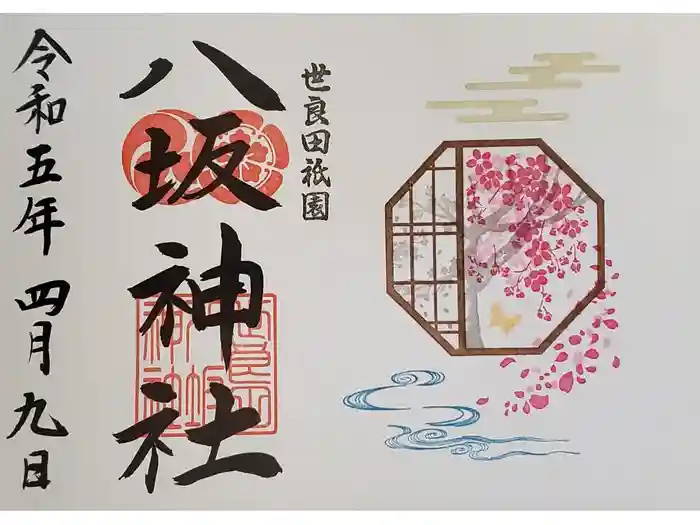 世良田祇園
八坂神社
令和五年四月九日